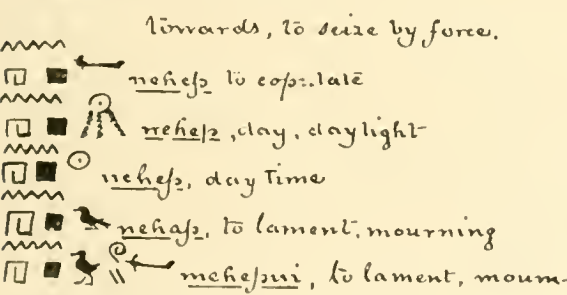 towards, to seize by force.
𓈖𓉔𓊪𓂺 nehep to copulate
𓈖𓉔𓊪𓇶 nehep, day, daylight
𓈖𓉔𓊪𓇳 nehep, day time
𓈖𓉔𓊪𓅪 nehap, to lament, mourning
𓈖𓉔𓊪𓅪𓏲𓏭 nehepui, to lament, mourn-